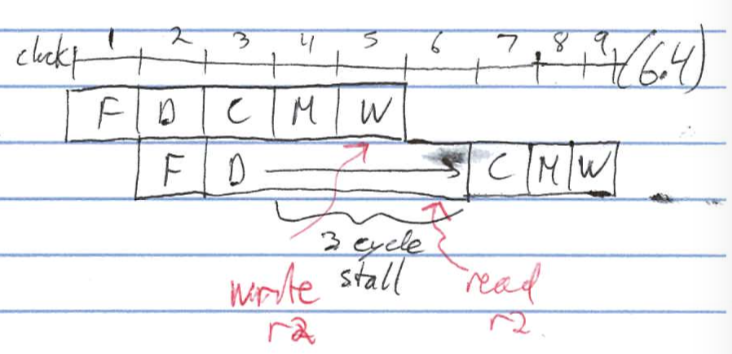 clock 1 2 3 4 5 6 7 8 9 (6.4)
F D C M W
F D C M W
3 cycle
stall
write
r2
read
r2